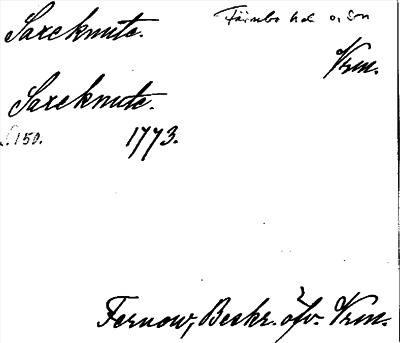 Saxeknute. Färnebo hd o. sn
Vrm.
Saxeknute.
S.150. 1773.
Fernow, Beskr. öfv. Vrm.